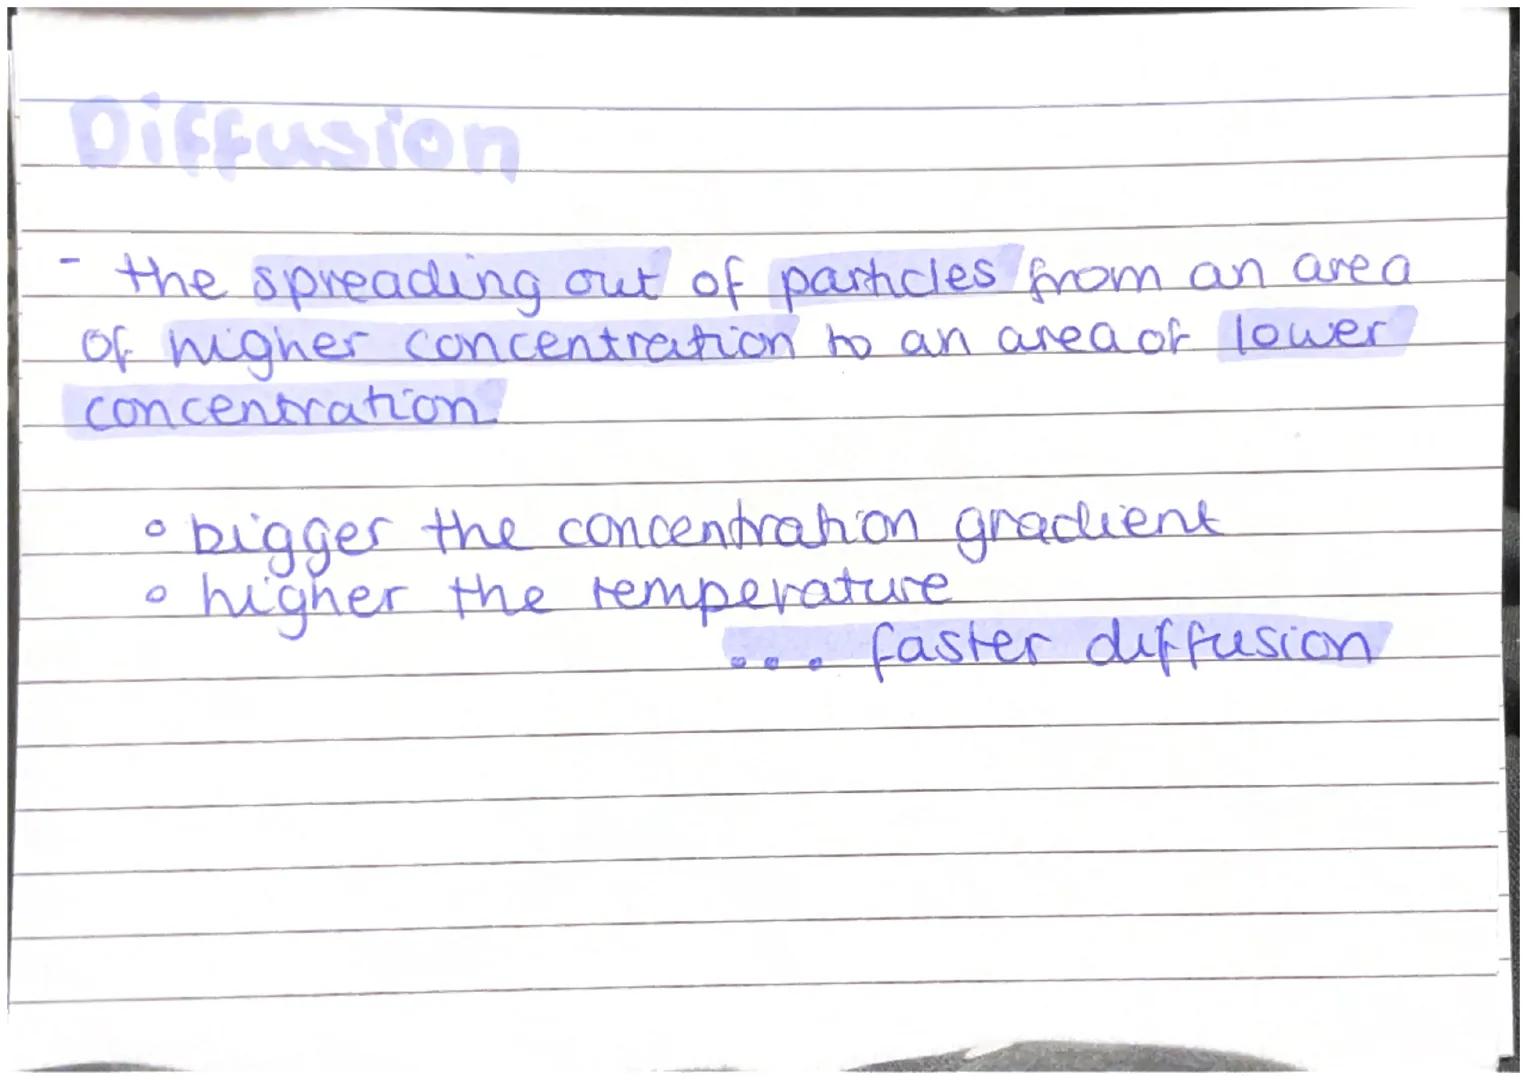 Diffusion
- the spreading out of particles from an area
of higher concentration to an area of lower
concentration
∘ bigger the concentration gradient
∘ higher the temperature
... faster diffusion